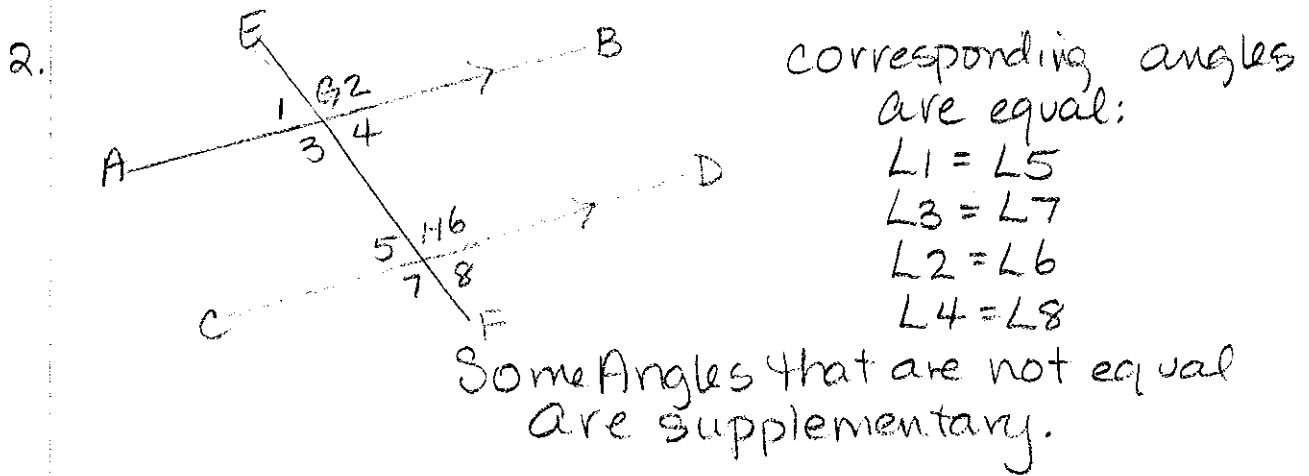 2.
E
B
G2
1
3 4
A
D
5 H6
7 8
C
F
corresponding angles
are equal:
∠1 = ∠5
∠3 = ∠7
∠2 = ∠6
∠4 = ∠8
Some Angles that are not equal
are supplementary.